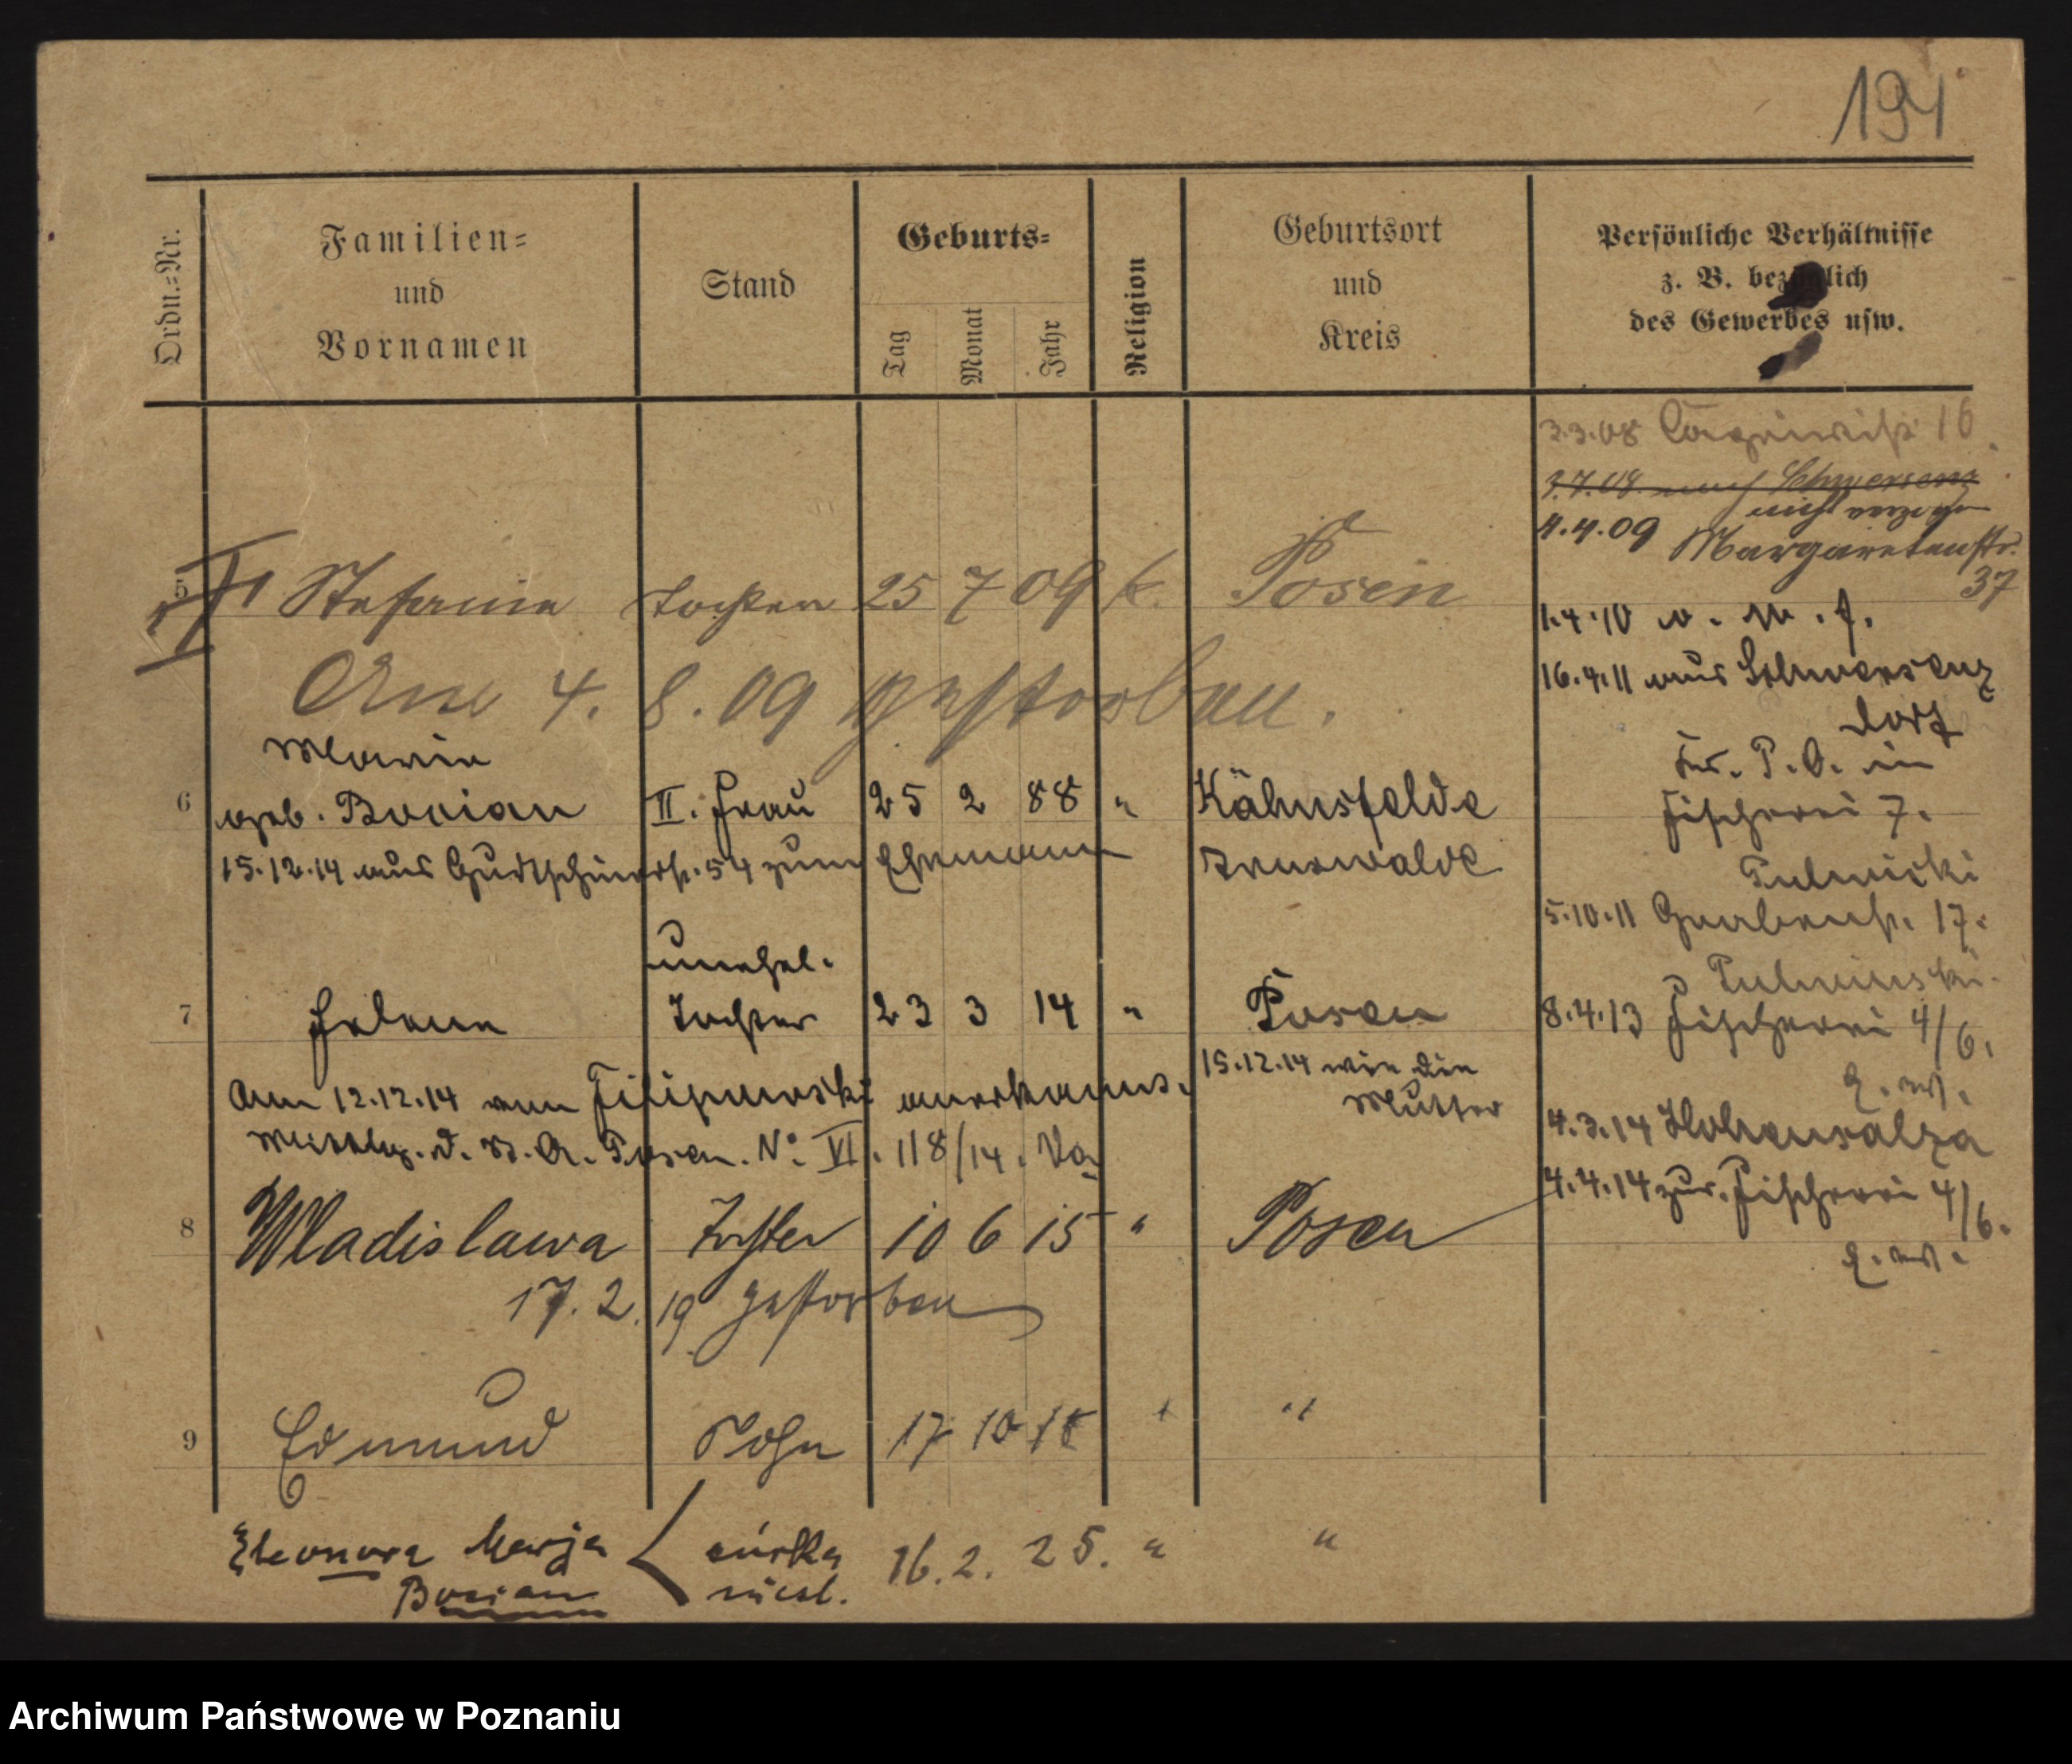 191
Ordn.=Nr.
Familien=
und
Vornamen
Stand
Geburts=
Tag
Monat
Jahr
Religion
Geburtsort
und
Kreis
Persönliche Verhältnisse
z. B. bezüglich
des Gewerbes usw.
3.3.08 16
3.7.08 nach Schwersenz
nicht verzogen
4.4.09 Margaretenstr.
37
5 Stefanie Tochter 25 7 09 k. Posen
1.4.10 v. W. f.
Am 4. 8. 09 gestorben.
16.4.11 aus Schwersenz
dorf
Maria
6 geb. Bocian II. Frau 25 2 88 " Kähnsfelde
Fischerei 7.
15.12.14 aus 54 zum Ehemann Arnswalde
5.10.11 Grabenstr. 17.
unehel.
7 Helene Tochter 23 3 14 " Posen
8.4.13 Fischerei 4/6.
15.12.14 wie die
Mutter
Am 12.12.14 von Filipowski anerkannt.
4.3.14 Hohensalza
Mitthlg. d. St. A. Posen. No. VI. 118/14.
4.4.14 zur. Fischerei 4/6.
8 Wladislawa Tochter 10 6 15 " Posen
17. 2. 19 gestorben
9 Edmund Sohn 17 10 18 " "
Eleonora Marja córka 16. 2. 25. " "
Bocian nieśl.
Archiwum Państwowe w Poznaniu